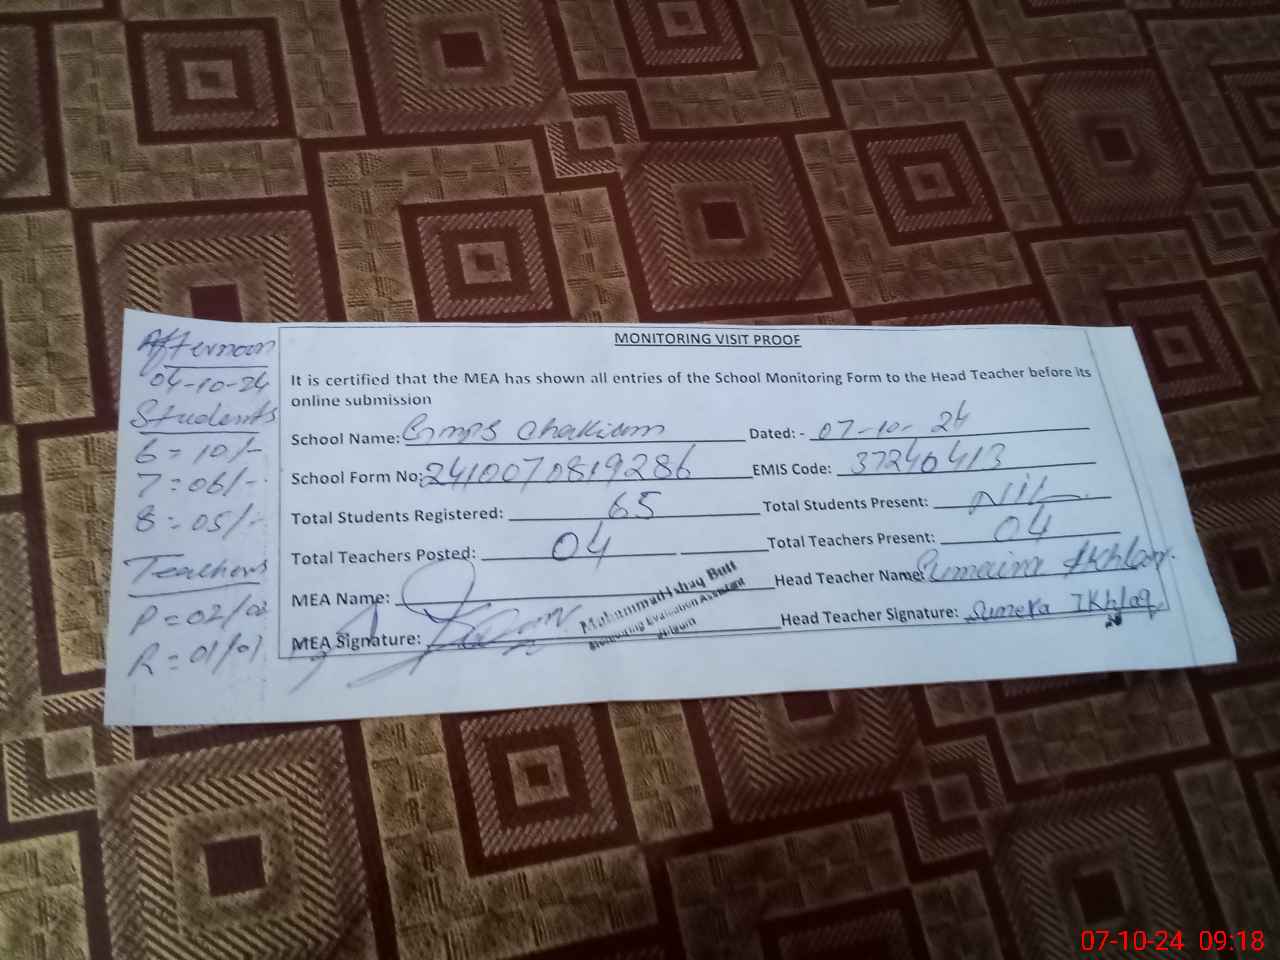 Afternoon
04-10-24
Students
6 = 10/-
7 = 06/-
8 = 05/-
Teachers
P = 02/02
R = 01/01
MONITORING VISIT PROOF
It is certified that the MEA has shown all entries of the School Monitoring Form to the Head Teacher before its
online submission
School Name: Gmps Dated: - 07-10-24
School Form No: 2410070819286 EMIS Code: 37240413
Total Students Registered: 65 Total Students Present: Nil
Total Teachers Posted: 04 Total Teachers Present: 04
MEA Name: Head Teacher Name: Sumaira Ikhlaq
MEA Signature: Head Teacher Signature: Sumera Ikhlaq
Muhammad Ishaq Butt
Monitoring Evaluation Assistant
07-10-24 09:18